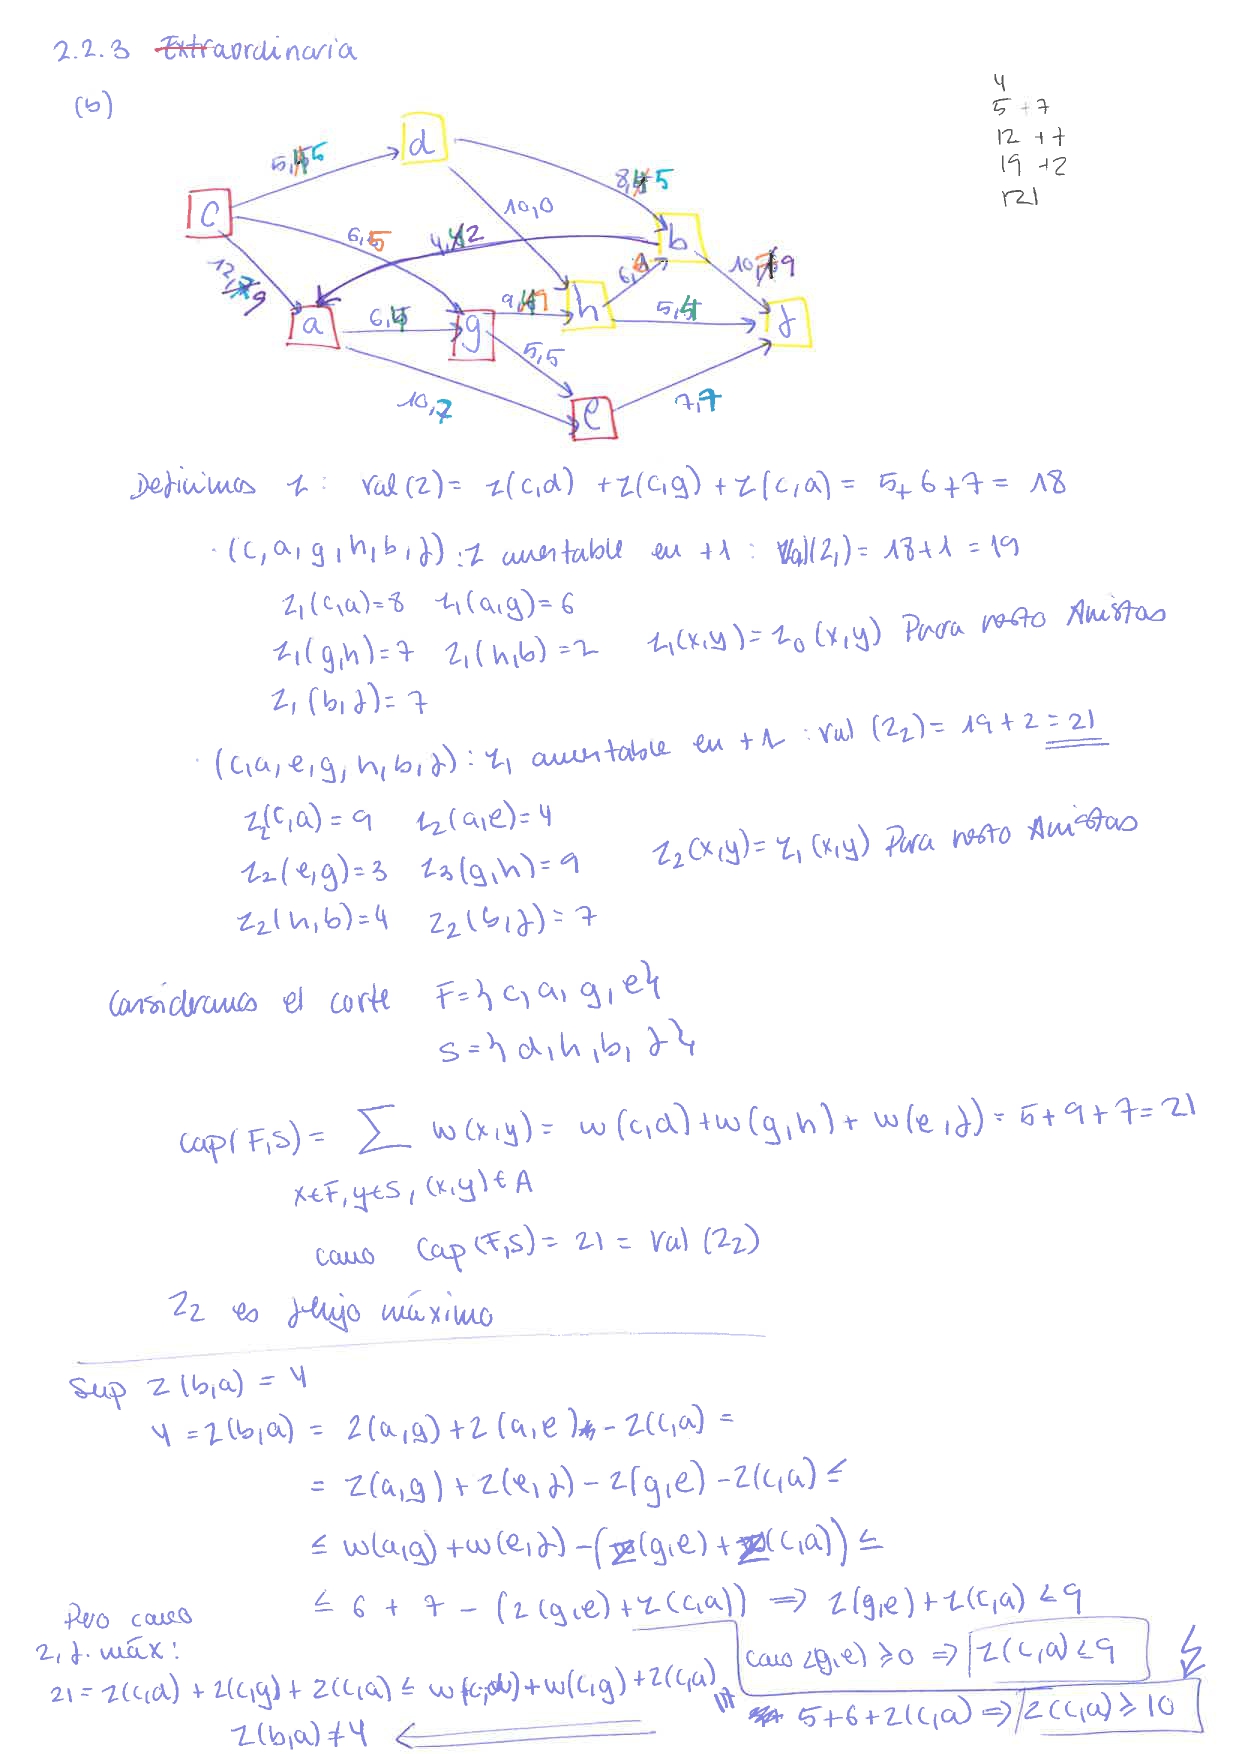 2.2.3 Extraordinaria
(b)
4
5 + 7
12 + 7
19 + 2
21
d
c
b
a
g
h
f
e
10,0
6,5
5,5
10,7
7,7
Definimos z : val(z) = z(c,d) + z(c,g) + z(c,a) = 5+6+7 = 18
· (c,a,g,h,b,f) : z aumentable en +1 : Val(z1) = 18+1 = 19
z1(c,a)=8 z1(a,g)=6
z1(g,h)=7 z1(h,b)=2 z1(x,y)=z0(x,y) Para resto Aristas
z1(b,f)=7
· (c,a,e,g,h,b,f) : z1 aumentable en +2 : val (z2) = 19+2 = 21
z2(c,a)=9 z2(a,e)=4
z2(e,g)=3 z3(g,h)=9 z2(x,y)=z1(x,y) Para resto Aristas
z2(h,b)=4 z2(b,f)=7
Consideramos el corte F={c,a,g,e}
S={d,h,b,f}
cap(F,S) = ∑ w(x,y) = w(c,d)+w(g,h)+w(e,f) = 5+9+7=21
x∈F, y∈S, (x,y)∈A
como Cap(F,S) = 21 = Val (z2)
z2 es flujo máximo
Sup z(b,a) = 4
4 = z(b,a) = z(a,g) + z(a,e) - z(c,a) =
= z(a,g) + z(e,f) - z(g,e) - z(c,a) ≤
≤ w(a,g) + w(e,f) - (z(g,e) + z(c,a)) ≤
≤ 6 + 7 - (z(g,e) + z(c,a)) ⇒ z(g,e) + z(c,a) ≤ 9
como z(g,e) ≥ 0 ⇒ z(c,a) ≤ 9
Pero como
z, f. máx:
21 = z(c,d) + z(c,g) + z(c,a) ≤ w(c,d) + w(c,g) + z(c,a)
5+6+z(c,a) ⇒ z(c,a) ≥ 10
z(b,a) ≠ 4 ⇐